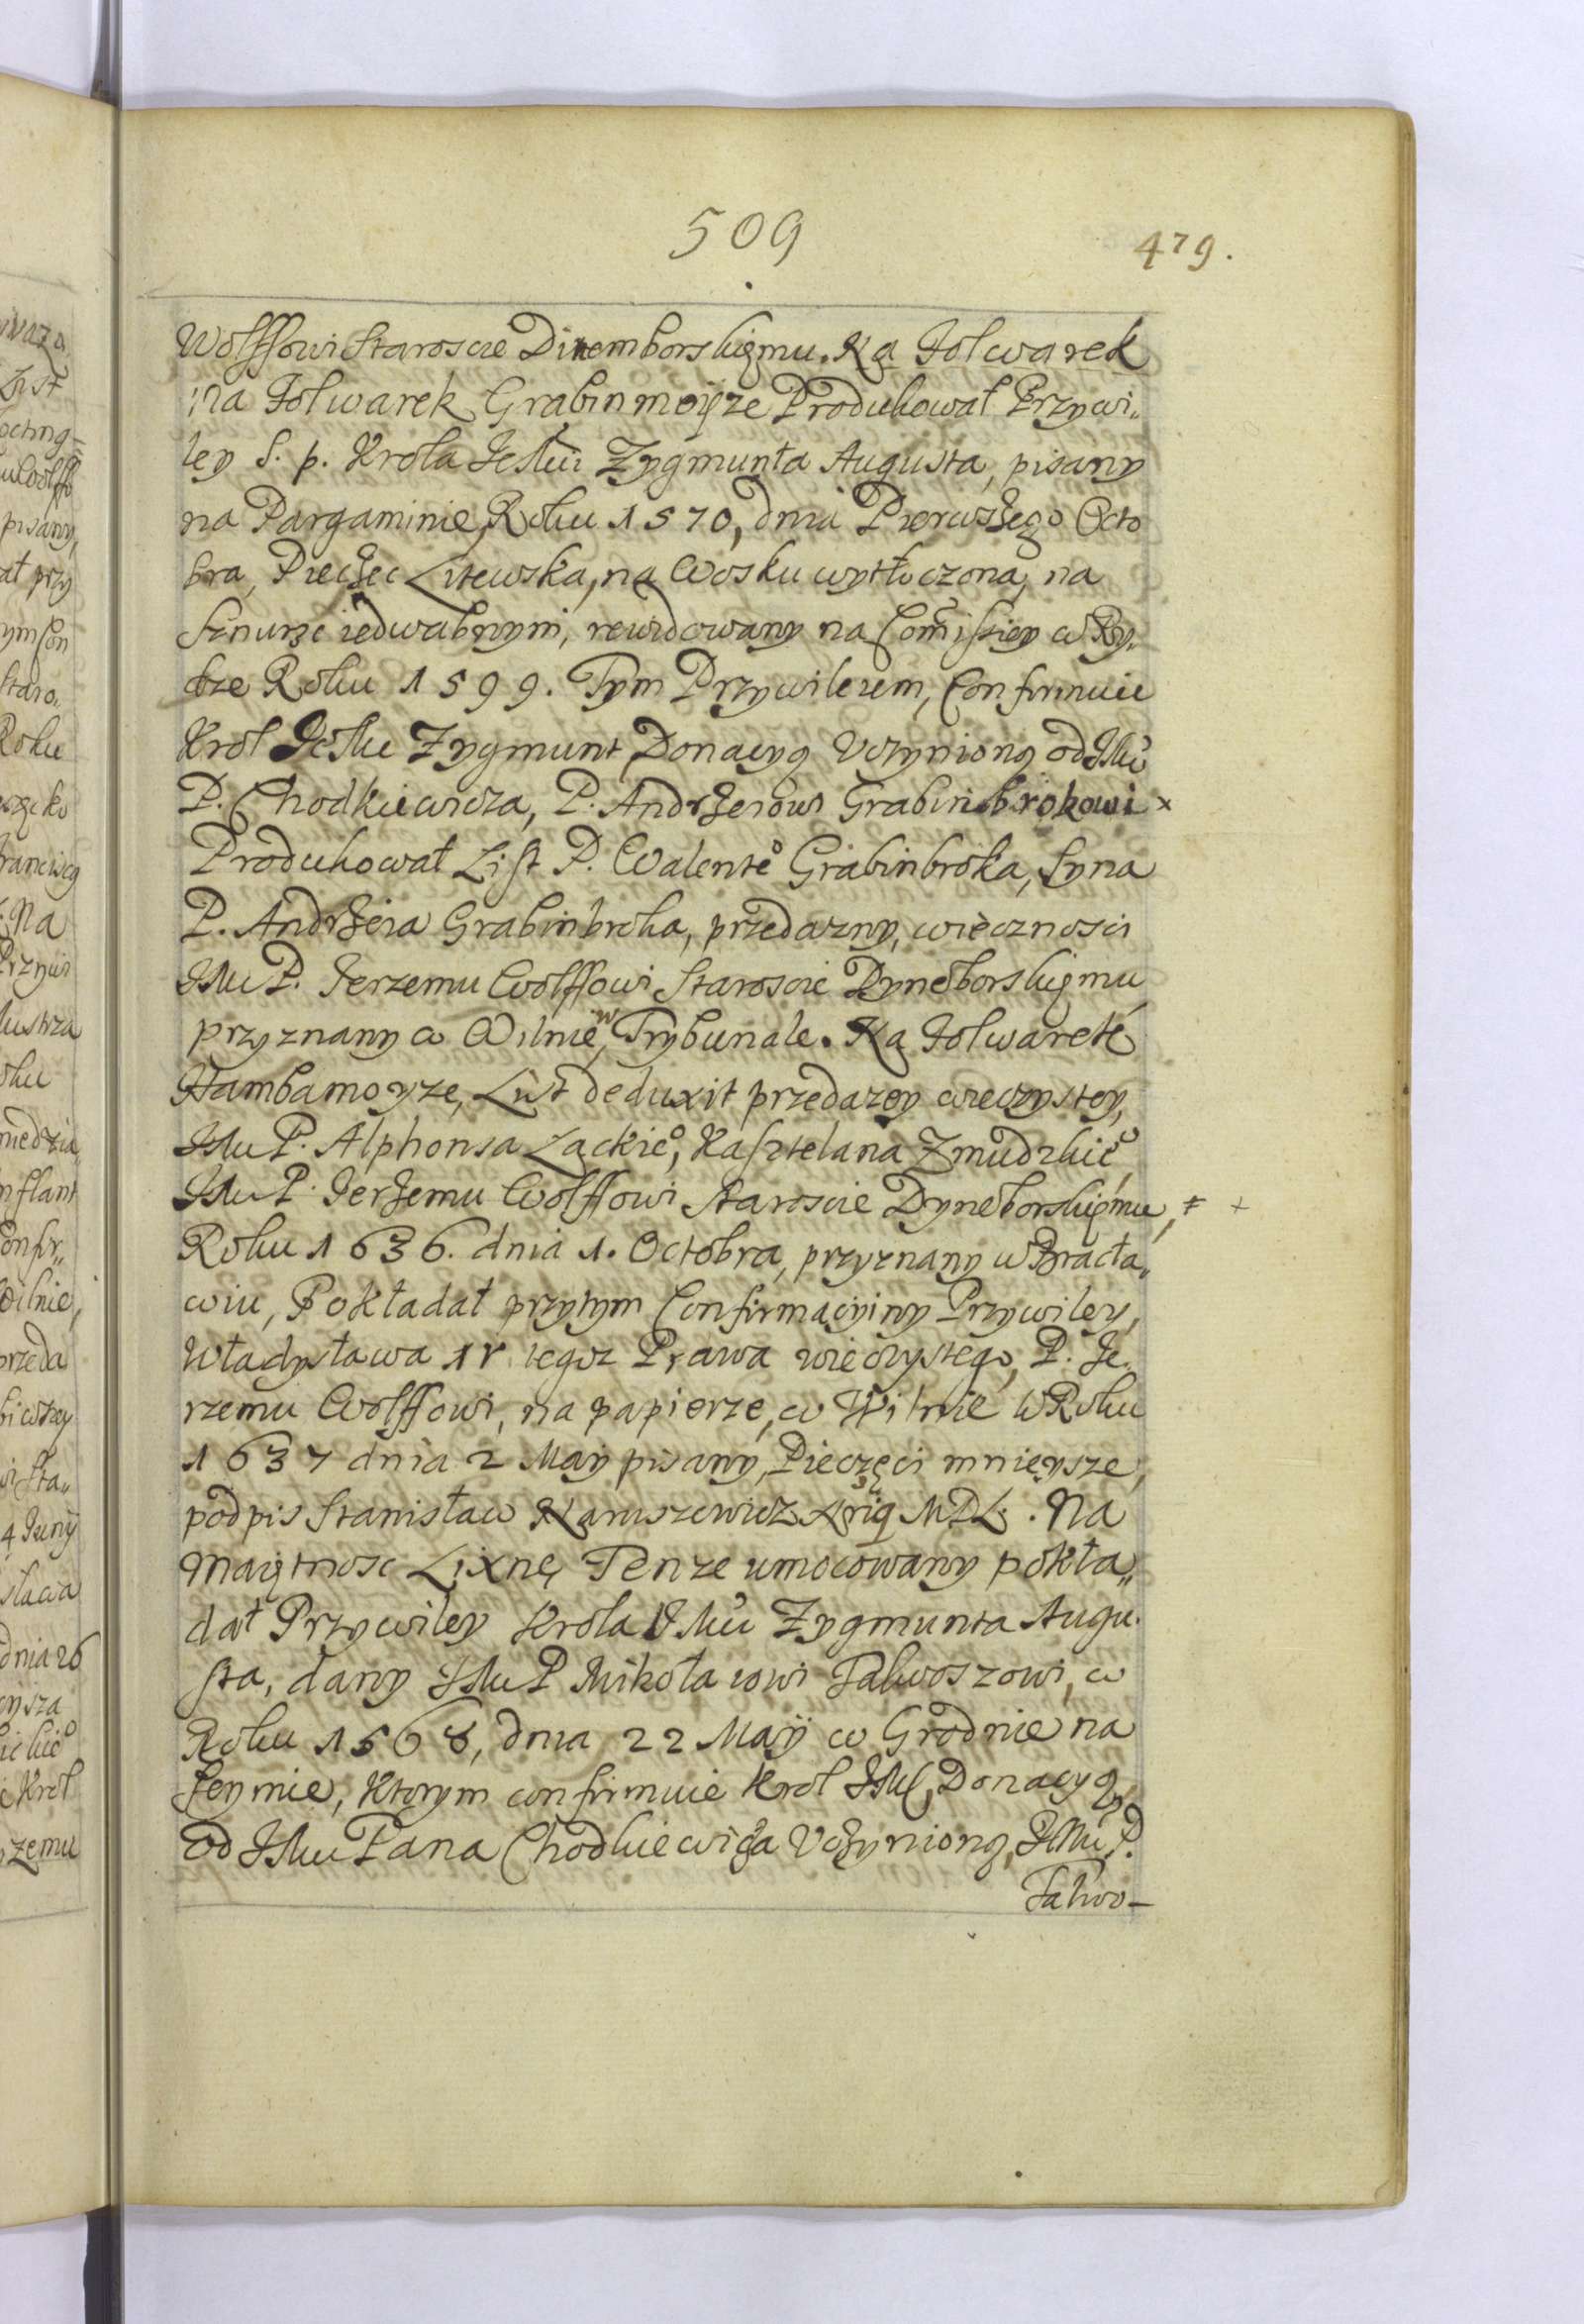 509
479.
Wolffowi Staroscie Dinemborskiemu. Na Folwarek
na Folwarek Grabinmoyze Produkował Przywi„
ley S. p. Krola JeMci Zygmunta Augusta, pisany
na Pargaminie, Roku 1570, dnia Pierwszego Octo
bra, Pieczęc Litewska, na Wosku wytłoczona, na
Sznurze iedwabnym, rewidowany na Comissiey w Ry„
dze Roku 1599. Tym Przywileiem, Confirmuie
Krol JeMc Zygmunt Donacyą Uczynioną od JMci
P. Chodkiewicza, P. Andrzeiowi Grabinbrokowi ×
Produkował List P. Walentego Grabinbroka, Syna
P. Andrzeia Grabinbroka, przedazny, wiecznosci
JMc P. Jerzemu Wolffowi Staroscie Dyneborskiemu
przyznany w Wilnie, w Trybunale. Na Folwarek
Stambamoyze, List deduxit przedazey wieczystey,
JMc P. Alphonsa Lackieo, Kasztelana Zmudzkieo
JMc P. Jerzemu Wolffowi Staroscie Dyneborskiemu, +
Roku 1636. dnia 1. Octobra, przyznany w Bracła„
wiu, Pokładał przytym Confirmacyiny Przywiley,
Władysława IV tegoz Prawa wieczystego, P. Je„
rzemu Wolffowi, na papierze, w Wilnie w Roku
1637 dnia 2 May pisany, Pieczęci mnieysze,
podpis Stanisław Naruszewicz MDL. Na
Maiętnosc Lixnę Tenze umocowany pokła„
dał Przywiley Krola JMci Zygmunta Augu„
sta, dany JMc P Mikołaiowi Talwoszowi, w
Roku 1568, dnia 22 Maÿ w Grodnie na
Seymie, Ktorym confirmuie Krol JMc, Donacyą
od JMc Pana Chodkiewicza Uczynioną, JMci P.
Talwo-